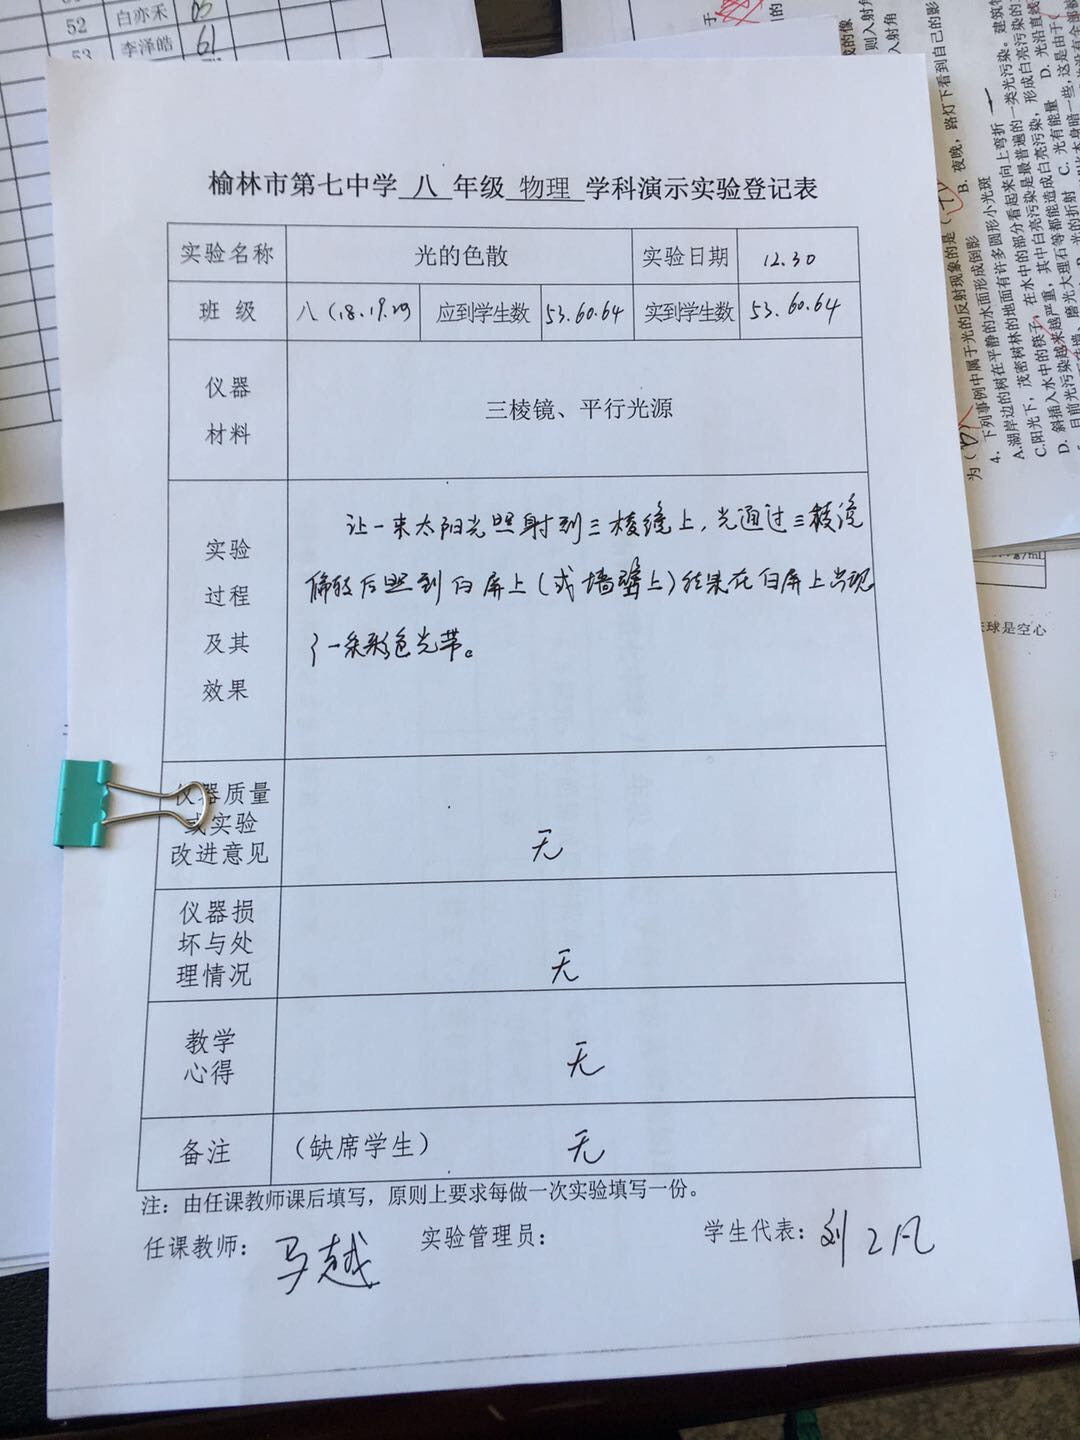 52 白亦禾
53 李泽皓 61
榆林市第七中学 八 年级 物理 学科演示实验登记表
实验名称 光的色散 实验日期 12.30
班 级 八(18.19.20) 应到学生数 53.60.64 实到学生数 53.60.64
仪器
材料
三棱镜、平行光源
实验
过程
及其
效果
让一束太阳光照射到三棱镜上,光通过三棱镜
偏散后照到白屏上(或墙壁上)结果在白屏上出现
了一条彩色光带。
仪器质量
或实验
改进意见
无
仪器损
坏与处
理情况
无
教学
心得
无
备注 (缺席学生) 无
注:由任课教师课后填写,原则上要求每做一次实验填写一份。
任课教师: 马越 实验管理员: 学生代表: 刘
4. 下列事例中属于光的反射现象的是
A.湖岸边的树在平静的水面形成倒影 B. 夜晚,路灯下看到自己的影
C.阳光下,茂密树林的地面有许多圆形小光斑
D. 斜插入水中的筷子,在水中的部分看起来向上弯折
球是空心